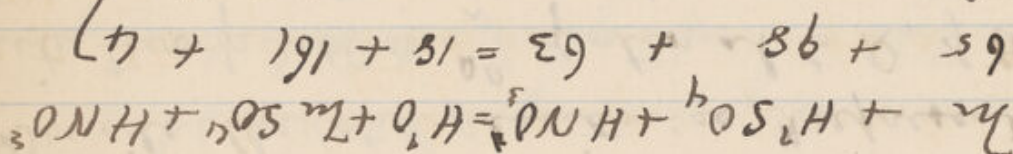 Zn + H₂SO₄ + HNO₃ = H₂O + Zn SO₄ + HNO₂
65 + 98 + 63 = 18 + 161 + 47